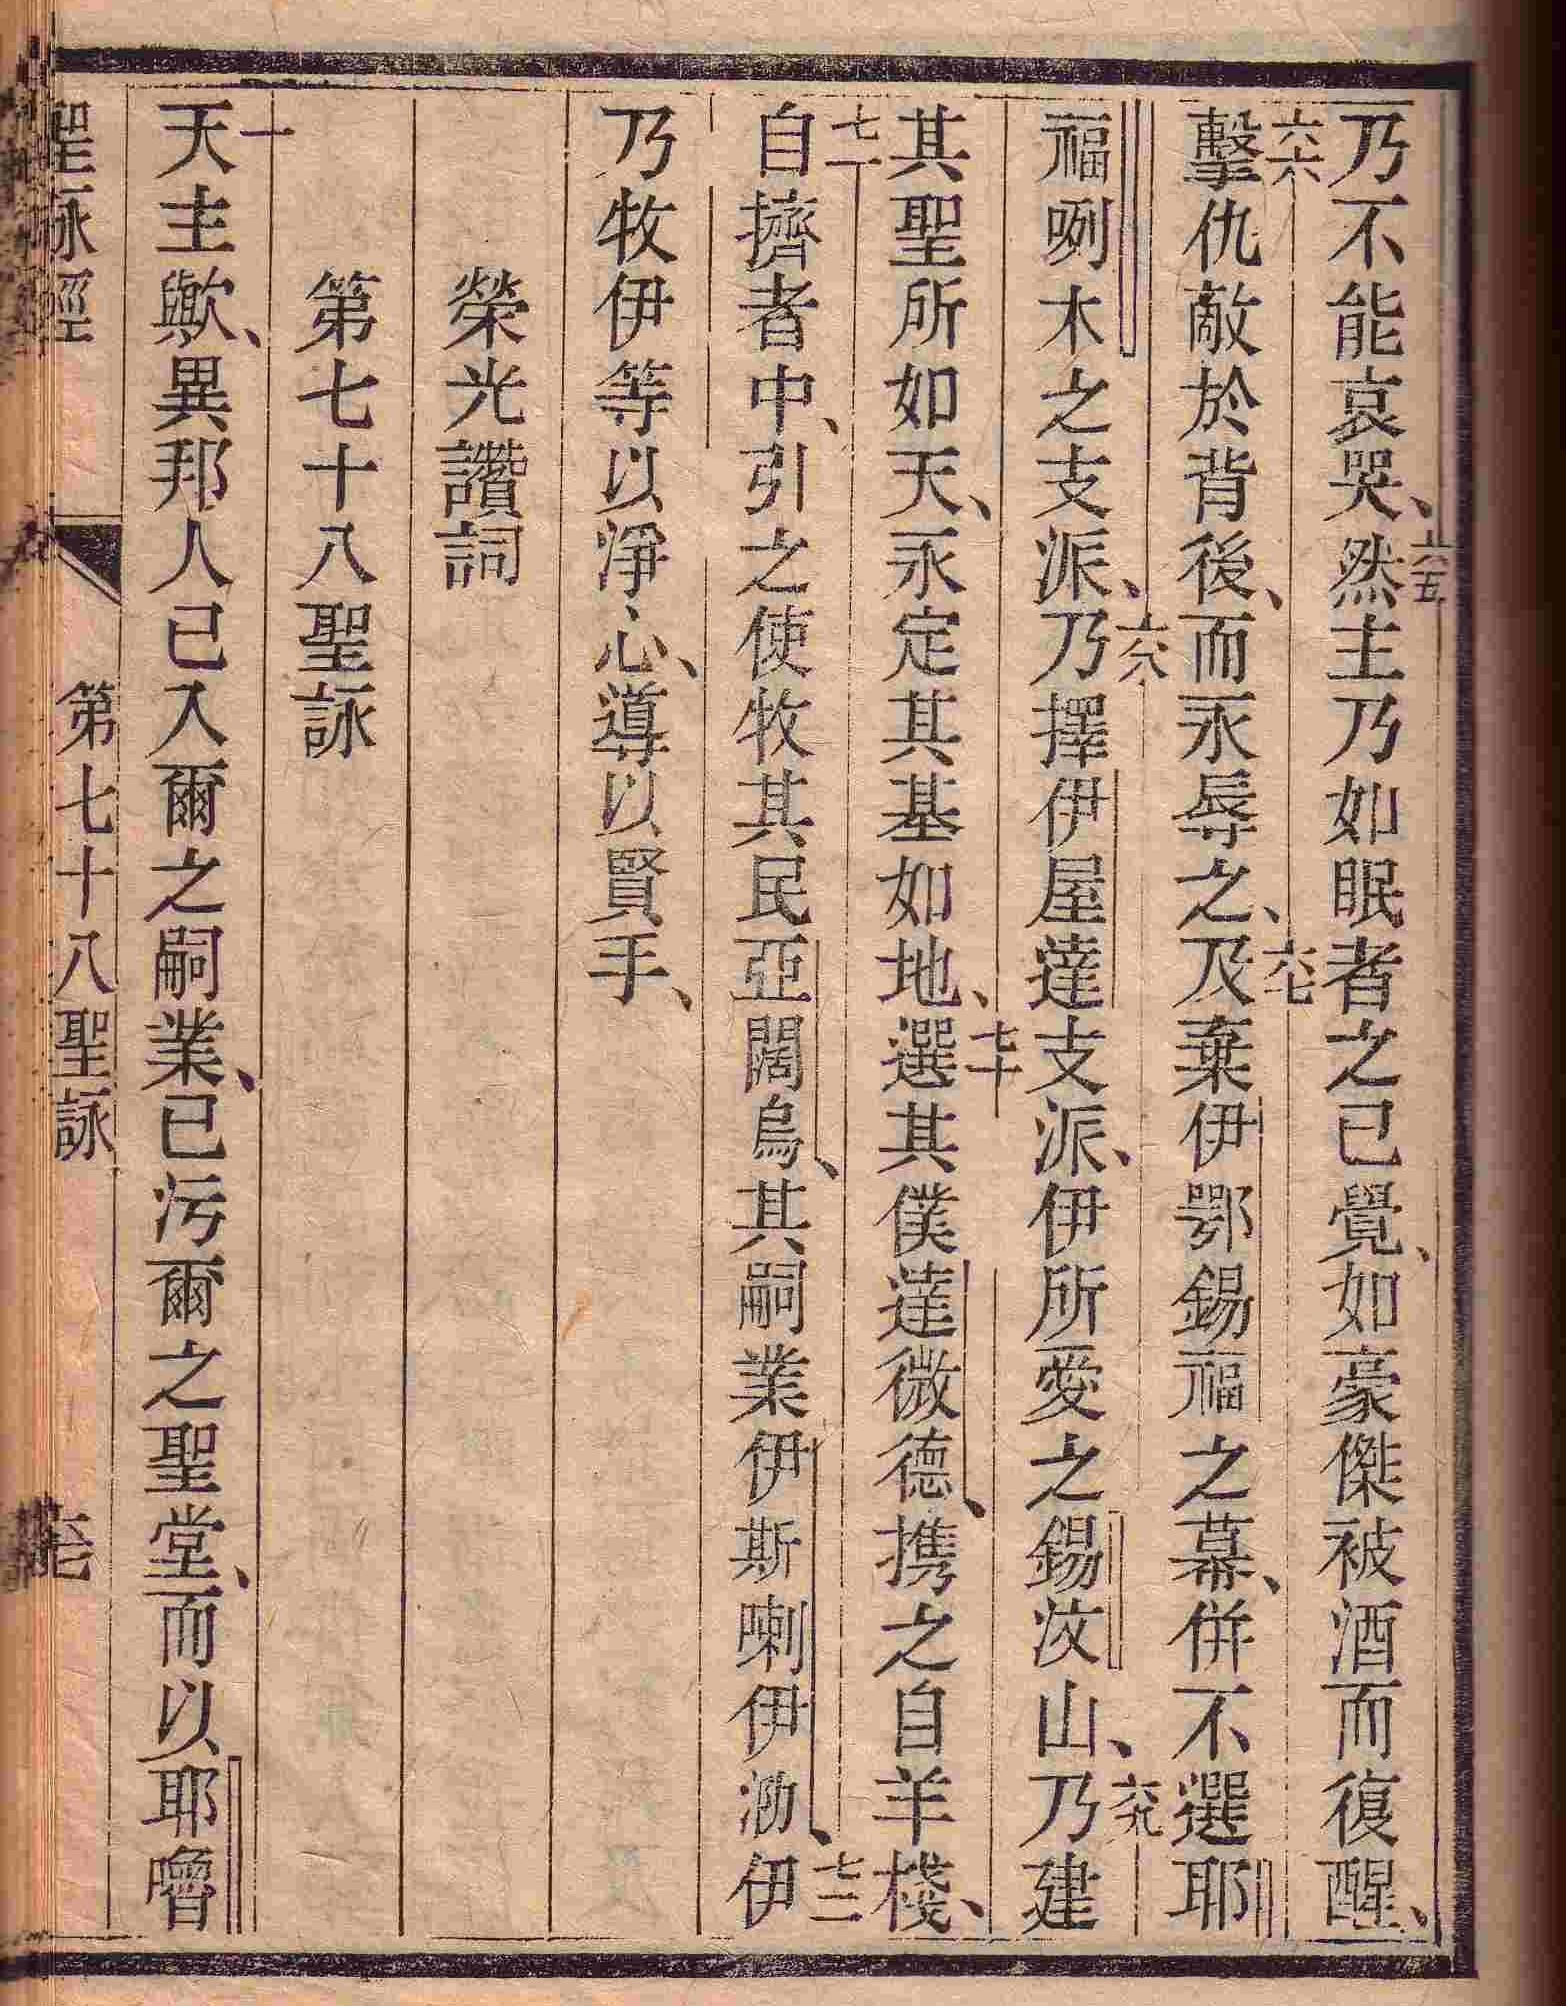 乃不能哀哭、六五然主乃如眠者之已覺、如豪傑被酒而復醒、
六六擊仇敵於背後、而永辱之、六七及棄伊鄂錫福之幕、併不選耶
福唎木之支派、六八乃擇伊屋達支派、伊所愛之錫汶山、六九乃建
其聖所如天、永定其基如地、七十選其僕達微德、携之自羊棧、
七一自擠者中、引之使牧其民亞闊烏、其嗣業伊斯喇伊泐、七二伊
乃牧伊等以淨心、導以賢手、
榮光讚詞
第七十八聖詠
一天主歟、異邦人已入爾之嗣業、已污爾之聖堂、而以耶嚕
聖詠經 第七十八聖詠